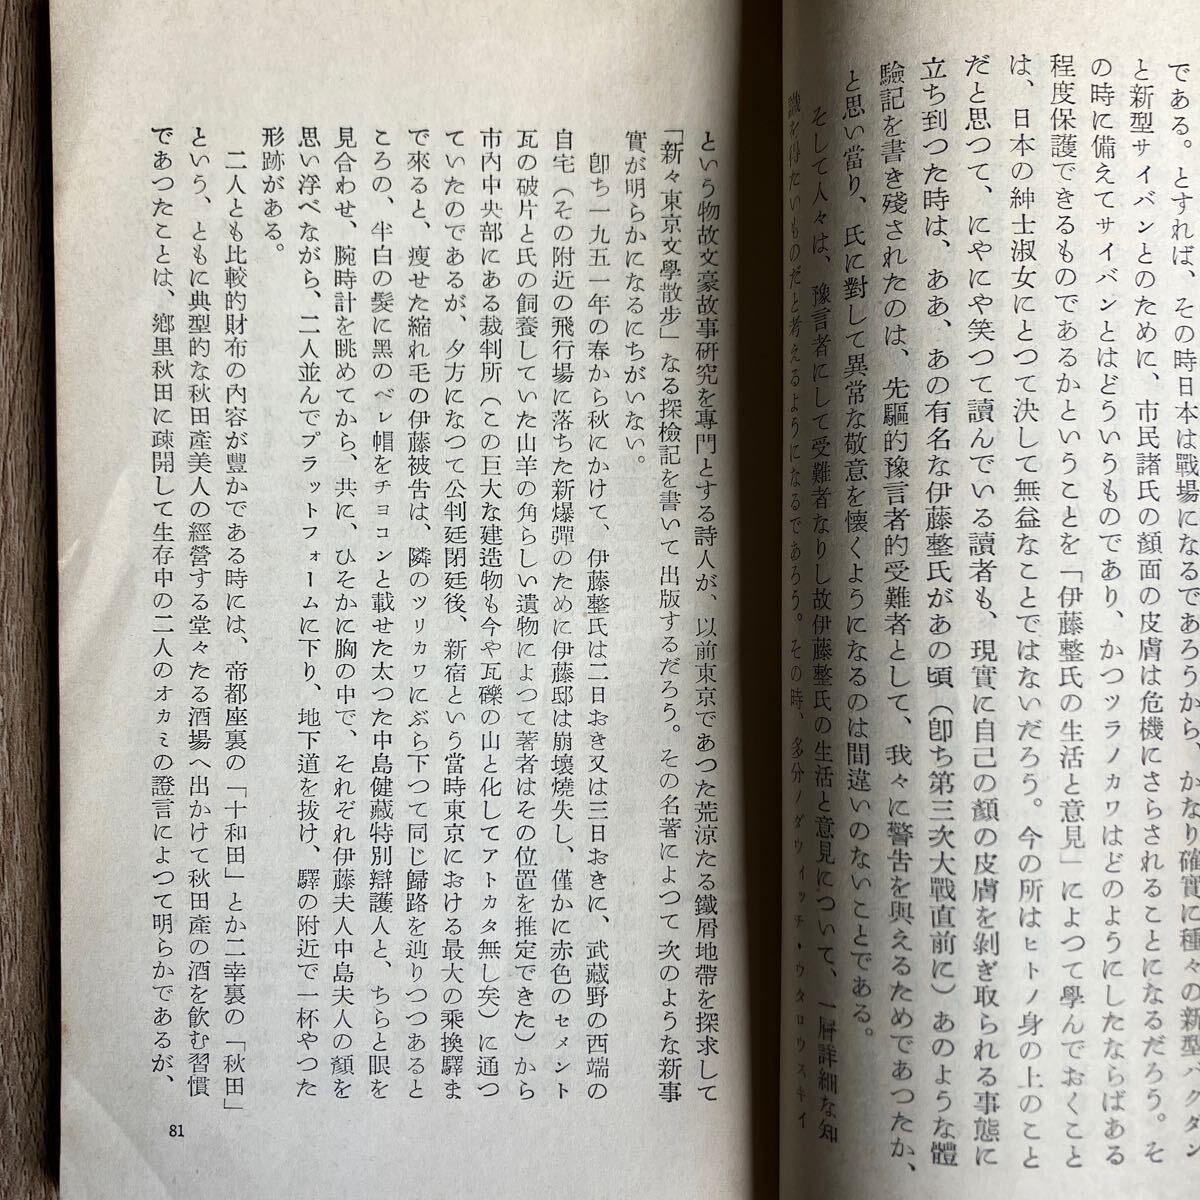 である。とすれば、その時日本は戰場になるであろうから、かなり確實に種々の新型バクダン
と新型サイバンとのために、市民諸氏の顏面の皮膚は危機にさらされることになるだろう。そ
の時に備えてサイバンとはどういうものであり、かつツラノカワはどのようにしたならばある
程度保護できるものであるかということを「伊藤整氏の生活と意見」によつて學んでおくこと
は、日本の紳士淑女にとつて決して無益なことではないだろう。今の所はヒトノ身の上のこと
だと思つて、にやにや笑つて讀んでいる讀者も、現實に自己の顏の皮膚を剝ぎ取られる事態に
立ち到つた時は、ああ、あの有名な伊藤整氏があの頃（卽ち第三次大戰直前に）あのような體
驗記を書き殘されたのは、先驅的豫言者的受難者として、我々に警告を與えるためであつたか、
と思い當り、氏に對して異常な敬意を懷くようになるのは間違いのないことである。
そして人々は、豫言者にして受難者なりし故伊藤整氏の生活と意見について、一層詳細な知
識を得たいものだと考えるようになるであろう。その時、多分ノダウイッチ・ウタロウスキイ
という物故文豪故事硏究を專門とする詩人が、以前東京であつた荒涼たる鐵屑地帶を探求して
「新々東京文學散步」なる探檢記を書いて出版するだろう。その名著によつて次のような新事
實が明らかになるにちがいない。
卽ち一九五一年の春から秋にかけて、伊藤整氏は二日おき又は三日おきに、武藏野の西端の
自宅（その附近の飛行場に落ちた新爆彈のために伊藤邸は崩壞燒失し、僅かに赤色のセメント
瓦の破片と氏の飼養していた山羊の角らしい遺物によつて著者はその位置を推定できた）から
市內中央部にある裁判所（この巨大な建造物も今や瓦礫の山と化してアトカタ無し矣）に通つ
ていたのであるが、夕方になつて公判廷閉廷後、新宿という當時東京における最大の乘換驛ま
で來ると、瘦せた縮れ毛の伊藤被吿は、隣のツリカワにぶら下つて同じ歸路を辿りつつあると
ころの、半白の髮に黑のベレ帽をチョコンと載せた太つた中島健藏特別辯護人と、ちらと眼を
見合わせ、腕時計を眺めてから、共に、ひそかに胸の中で、それぞれ伊藤夫人中島夫人の顏を
思い浮べながら、二人並んでプラットフォームに下り、地下道を拔け、驛の附近で一杯やつた
形跡がある。
二人とも比較的財布の內容が豐かである時には、帝都座裏の「十和田」とか二幸裏の「秋田」
という、ともに典型的な秋田產美人の經營する堂々たる酒場へ出かけて秋田產の酒を飮む習慣
であつたことは、鄕里秋田に疎開して生存中の二人のオカミの證言によつて明らかであるが、
81